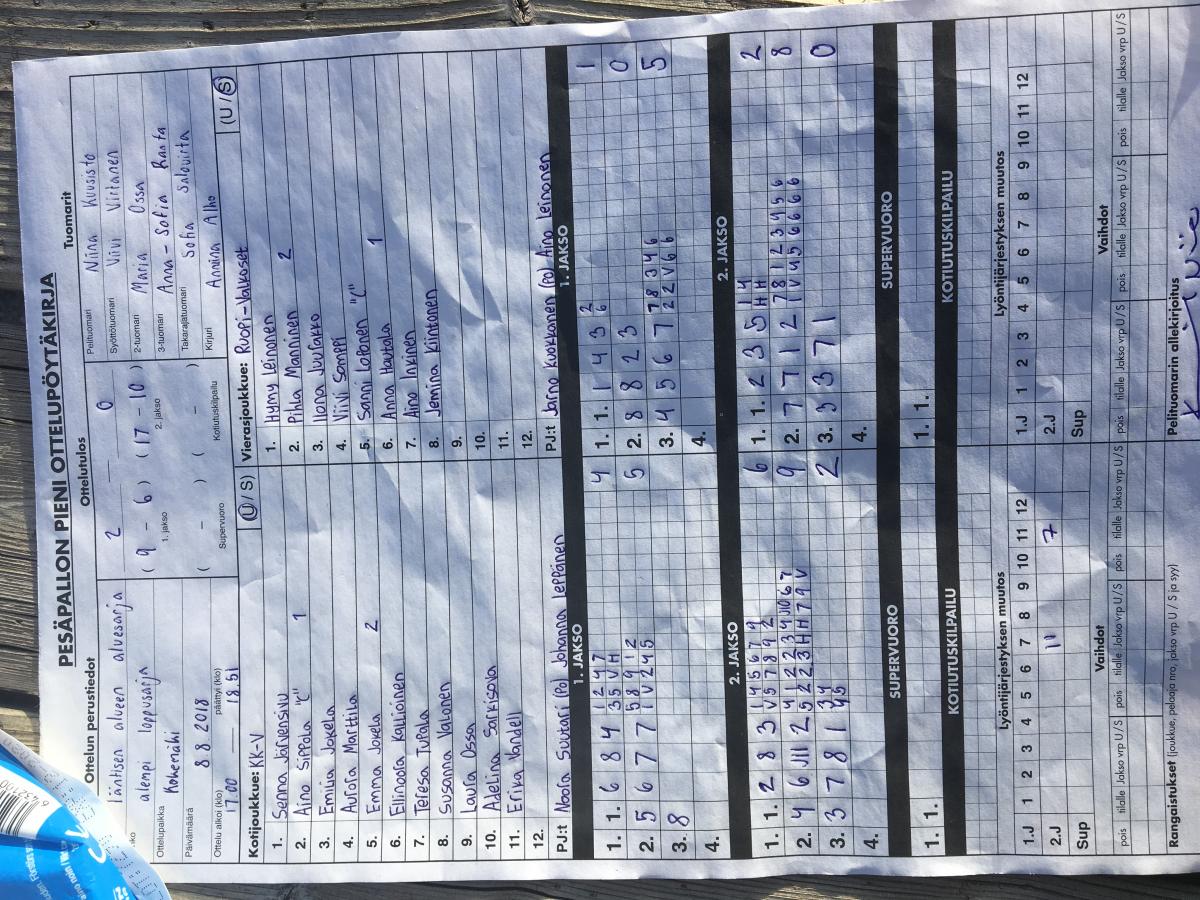 PESÄPALLON PIENI OTTELUPÖYTÄKIRJA
Ottelun perustiedot
läntisen alueen aluesarja
alempi loppusarja
Ottelupaikka
Kokemäki
Päivämäärä
8 8 2018
Ottelu alkoi (klo) päättyi (klo)
17.00 18.51
Ottelutulos
2 0
( 9 - 6 ) ( 17 - 10 )
1. jakso 2. jakso
( - ) ( - )
Supervuoro Kotiutuskilpailu
Tuomarit
Pelituomari Niina Kuusisto
Syöttötuomari Viivi Virtanen
2-tuomari Maria Ossa
3-tuomari Anna-Sofia Ranta
Takarajatuomari Sofia Salovirta
Kirjuri Anniina Alho
Kotijoukkue: KK-V (U / S)
1. Senna Järvensivu
2. Aino Sippola "C" 1
3. Emilia Jokela
4. Aurora Marttila
5. Emma Jokela 2
6. Ellinoora Kallioinen
7. Teresa Tupala
8. Susanna Valonen
9. Laura Ossa
10. Adelina Sarkisova
11. Erika Vandell
12.
PJ:t Noora Suutari (PJ) Johanna Leppänen
Vierasjoukkue: Ruopi-Valkoset (U / S)
1. Hymy Leinonen
2. Pihla Manninen 2
3. Ilona Juulakko
4. Viivi Somppi
5. Sanni Loponen "C"
6. Anna Hautala 1
7. Aino Inkinen
8. Jemina Kiintonen
9.
10.
11.
12.
PJ:t Jarno Kuokkanen (PJ) Aino Leinonen
1. JAKSO
1. 1. 6 8 4 1 2 4 7 4
3 5 V H
2. 5 6 7 7 5 8 9 1 2 5
1 V 2 4 5
3. 8
4.
1. JAKSO
1. 1. 1 4 3 2 1
6
2. 8 8 2 3 0
3. 4 5 6 7 7 8 3 4 6 5
2 2 V 6 6
4.
2. JAKSO
1. 1. 2 8 3 1 4 5 6 7 9 6
V 5 7 8 9 2
9
2
4.
2. JAKSO
1. 1. 2 3 5 1 4 2
H H
2. 7 7 1 2 7 8 1 2 3 4 5 6 8
1 V 4 5 6 6 6 6
3. 3 3 7 1 0
4.
SUPERVUORO
1. 1.
SUPERVUORO
1. 1.
KOTIUTUSKILPAILU
KOTIUTUSKILPAILU
Lyöntijärjestyksen muutos
1.J 1 2 3 4 5 6 7 8 9 10 11 12
2.J 11 7
Sup
Lyöntijärjestyksen muutos
1.J 1 2 3 4 5 6 7 8 9 10 11 12
2.J
Sup
Vaihdot
pois tilalle Jakso vrp U / S pois tilalle Jakso vrp U / S pois tilalle Jakso vrp U / S
Vaihdot
pois tilalle Jakso vrp U / S pois tilalle Jakso vrp U / S pois tilalle Jakso vrp U / S
Rangaistukset (joukkue, pelaaja nro, jakso vrp U / S ja syy)
Pelituomarin allekirjoitus